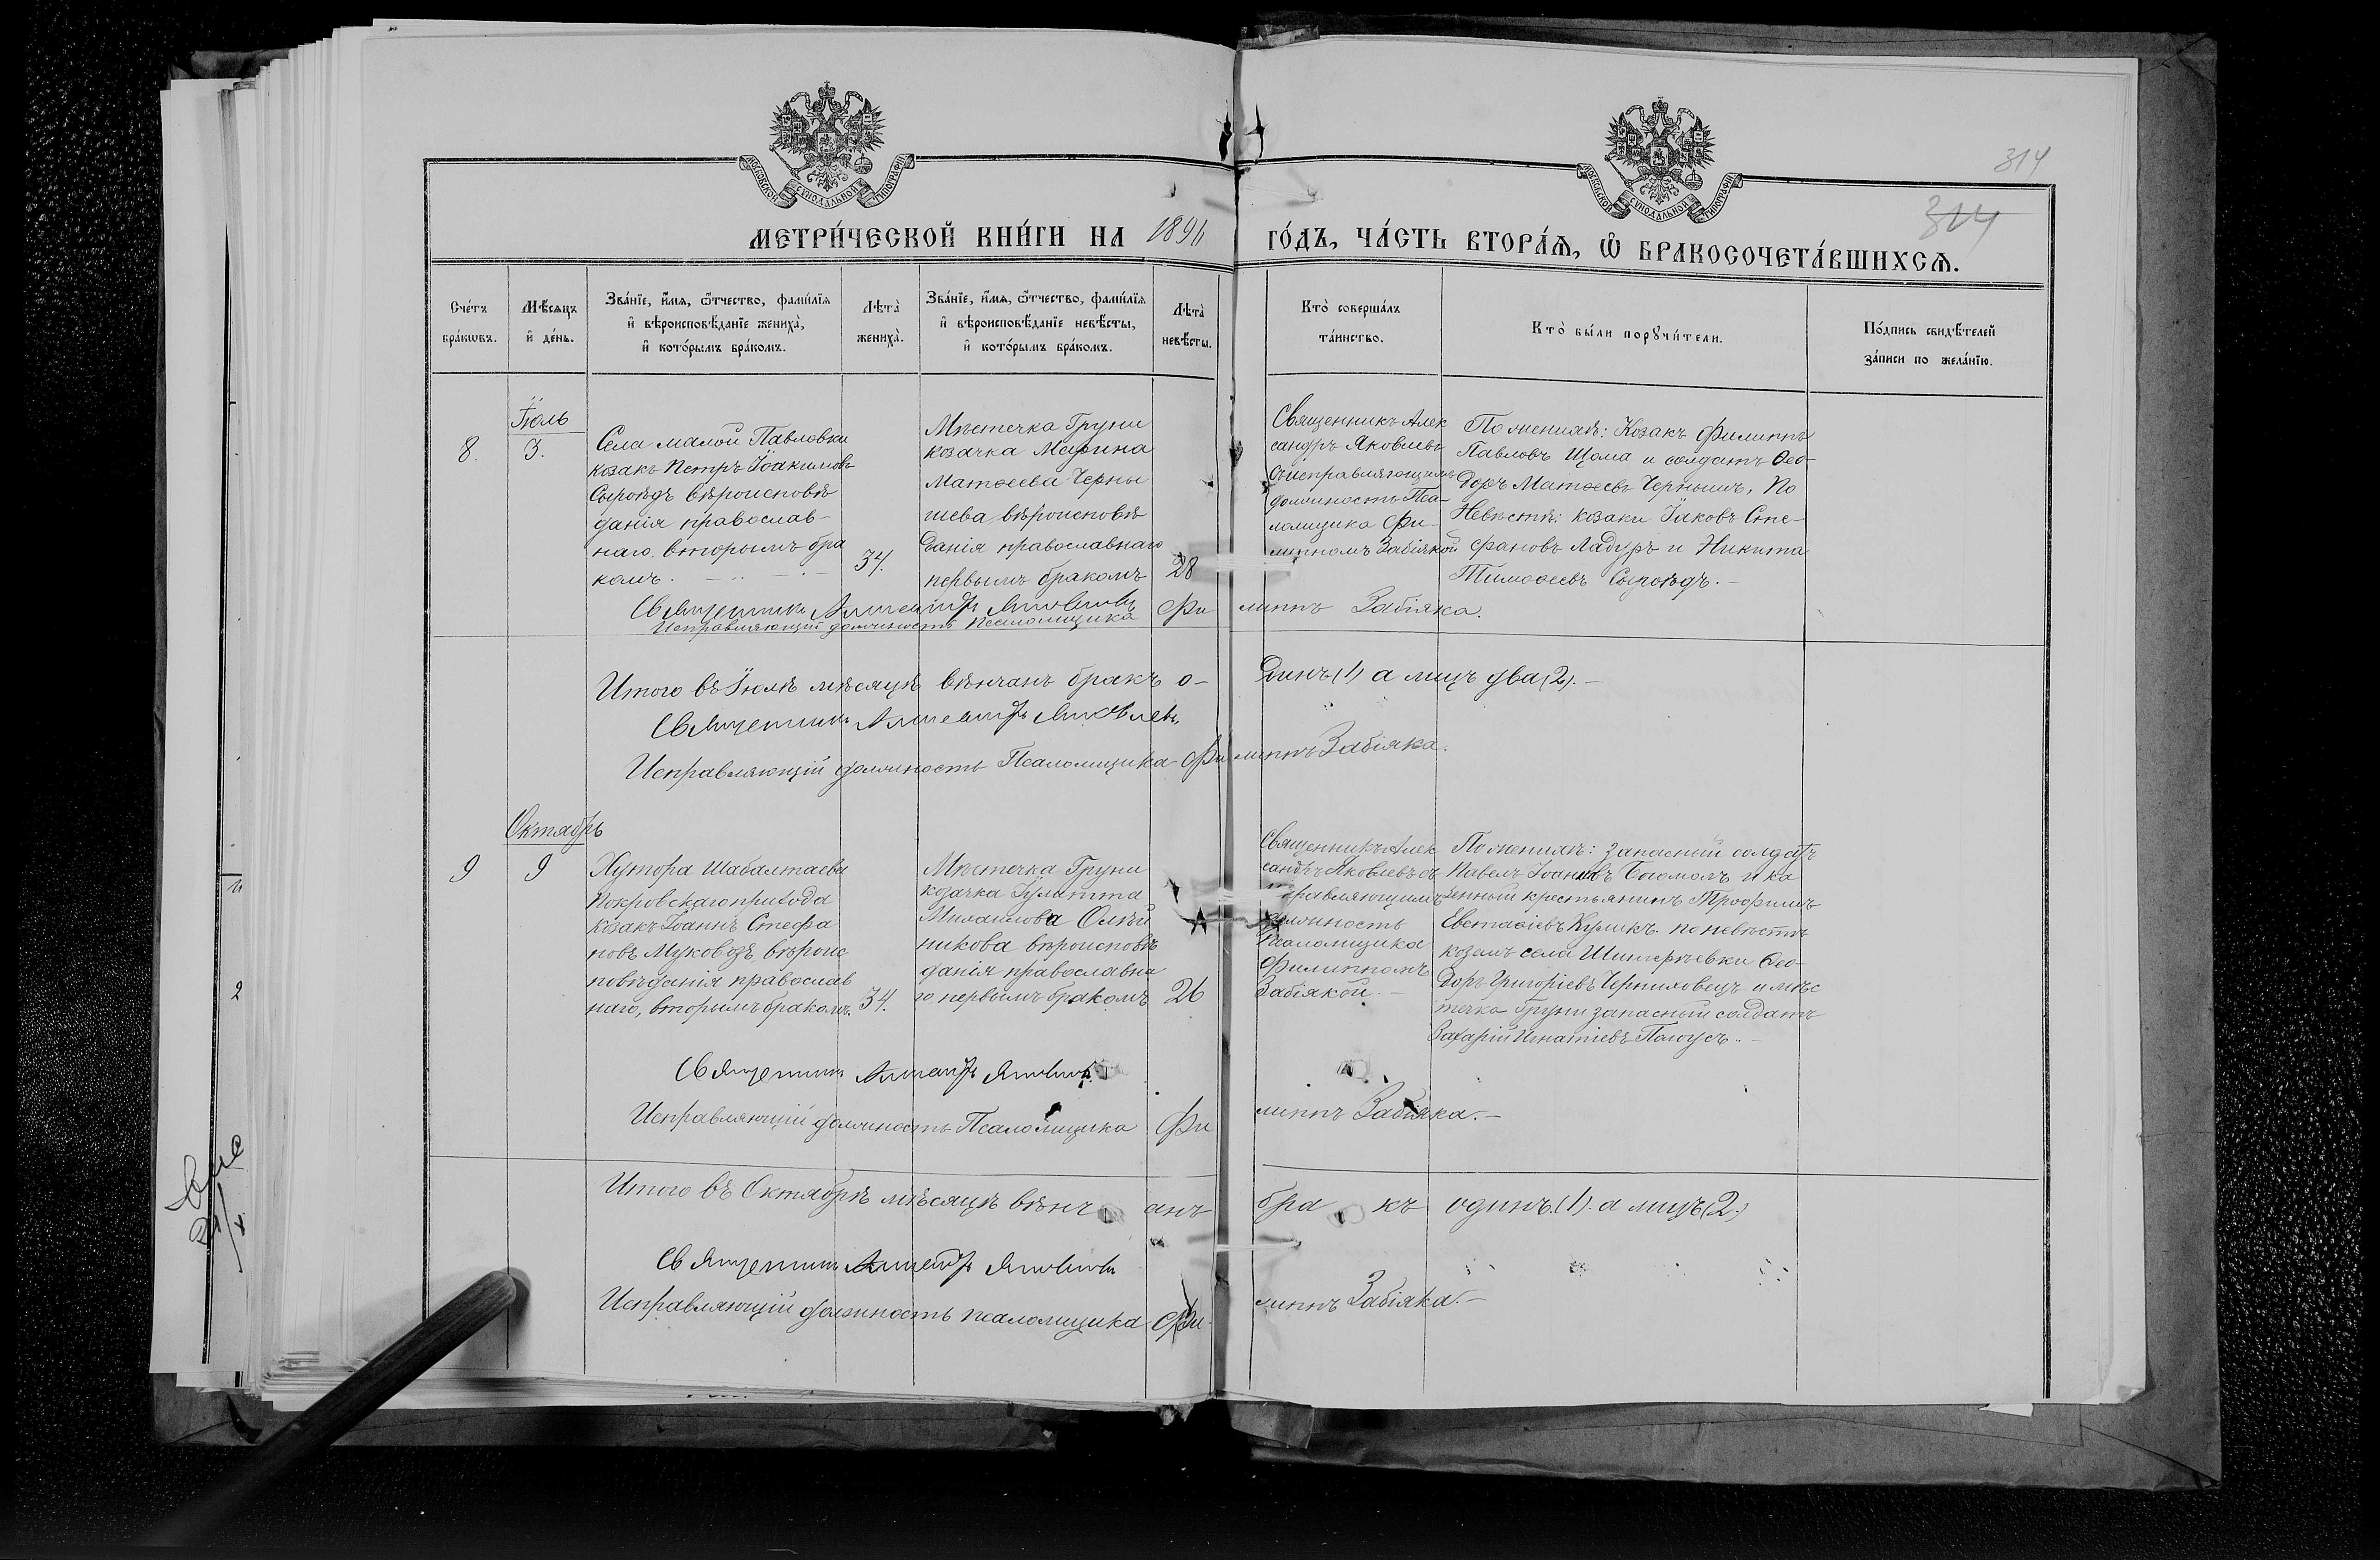 314
314
МОСКОВСКОЙ СѴНОДАЛЬНОЙ ТИПОГРАФІИ
МОСКОВСКОЙ СѴНОДАЛЬНОЙ ТИПОГРАФІИ
МЕТРИ́ЧЕСКОЙ КНИ́ГИ НА 1896 ГО́ДЪ, ЧА́СТЬ ВТОРА́Ѧ, Ѽ БРАКОСОЧЕТА́ВШИХСѦ.
Сче́тъ
бра́кѡвъ.
Мѣ́сѧцъ
и҆ де́нь.
Зва́нїе, и҆́мѧ, ѻ҆́тчество, фами́лїѧ
и҆ вѣроисповѣ́данїе жениха̀,
и҆ кото́рымъ бра́комъ.
Лѣта̀
жениха̀.
Зва́нїе, и҆́мѧ, ѻ҆́тчество, фами́лїѧ
и҆ вѣроисповѣ́данїе невѣ́сты,
и҆ кото́рымъ бра́комъ.
Лѣта̀
невѣ́сты.
Кто̀ соверша́лъ
та́инство.
Кто̀ бы́ли порꙋчи́тели.
По́дпись свидѣ́телей
за́писи по жела́нїю.
8.
Іюль
3.
Села малой Павловки
козакъ Петръ Іоакимовъ
Сыроѣдъ вѣроисповѣ
данія православ-
наго. вторымъ бра
комъ.
34.
Мѣстечка Груни
козачка Марина
Матѳеева Черны
шева, вѣроисповѣ
данія православнаго
первымъ бракомъ
28
Священникъ Алек
сандръ Яковлевъ
съ исправляющимъ
должность Пса-
ломщика Фи-
липпомъ Забіякой
По женихѣ: Козакъ Филиппъ
Павловъ Щома и солдатъ Ѳео-
доръ Матѳеевъ Чернышъ, По
Невѣстѣ: козаки Іаковъ Сте-
фановъ Ладуръ и Никита
Тимоѳеевъ Сыроѣдъ.-
Священникъ Александръ Яковлевъ
Исправляющій должность Псаломщика Филиппъ Забіяка.
Итого въ Іюлѣ мѣсяцѣ вѣнчанъ бракъ о-динъ (1) а лицъ два (2).-
Священникъ Александръ Яковлевъ
Исправляющій должность Псаломщика Филиппъ Забіяка.
Октябрь
9
9
Хутора Шабалтаева
Покровскаго прихода
козакъ Іоаннъ Стефа
новъ Муковозъ, вѣроис
повѣданія православ
наго, вторымъ бракомъ.
34.
Мѣстечка Груни
козачка Іулитта
Михаилова Олѣй
никова вѣроисповѣ
данія православна
го первымъ бракомъ
26
Священникъ Алек
сандръ Яковлевъ съ
исправляющимъ
должность
Псаломщика
Филиппомъ
Забіякой.-
По женихѣ: запасный солдатъ
Павелъ Іоанновъ Богомолъ и ка
зенный крестьянинъ Трофимъ
Евстаѳіевъ Куликъ. по невѣстѣ
козакъ села Ѳео-
доръ Григоріевъ Черниховецъ и мѣс
течка Груни запасный солдатъ
Захарій Игнатіевъ
Священникъ Александръ Яковлевъ
Исправляющій должность Псаломщика Филиппъ Забіяка.-
Итого въ Октябрѣ мѣсяцѣ вѣнчанъ бракъ одинъ.(1). а лицъ (2.)
Священникъ Александръ Яковлевъ
Исправляющій должность псаломщика Филиппъ Забіяка.-
2